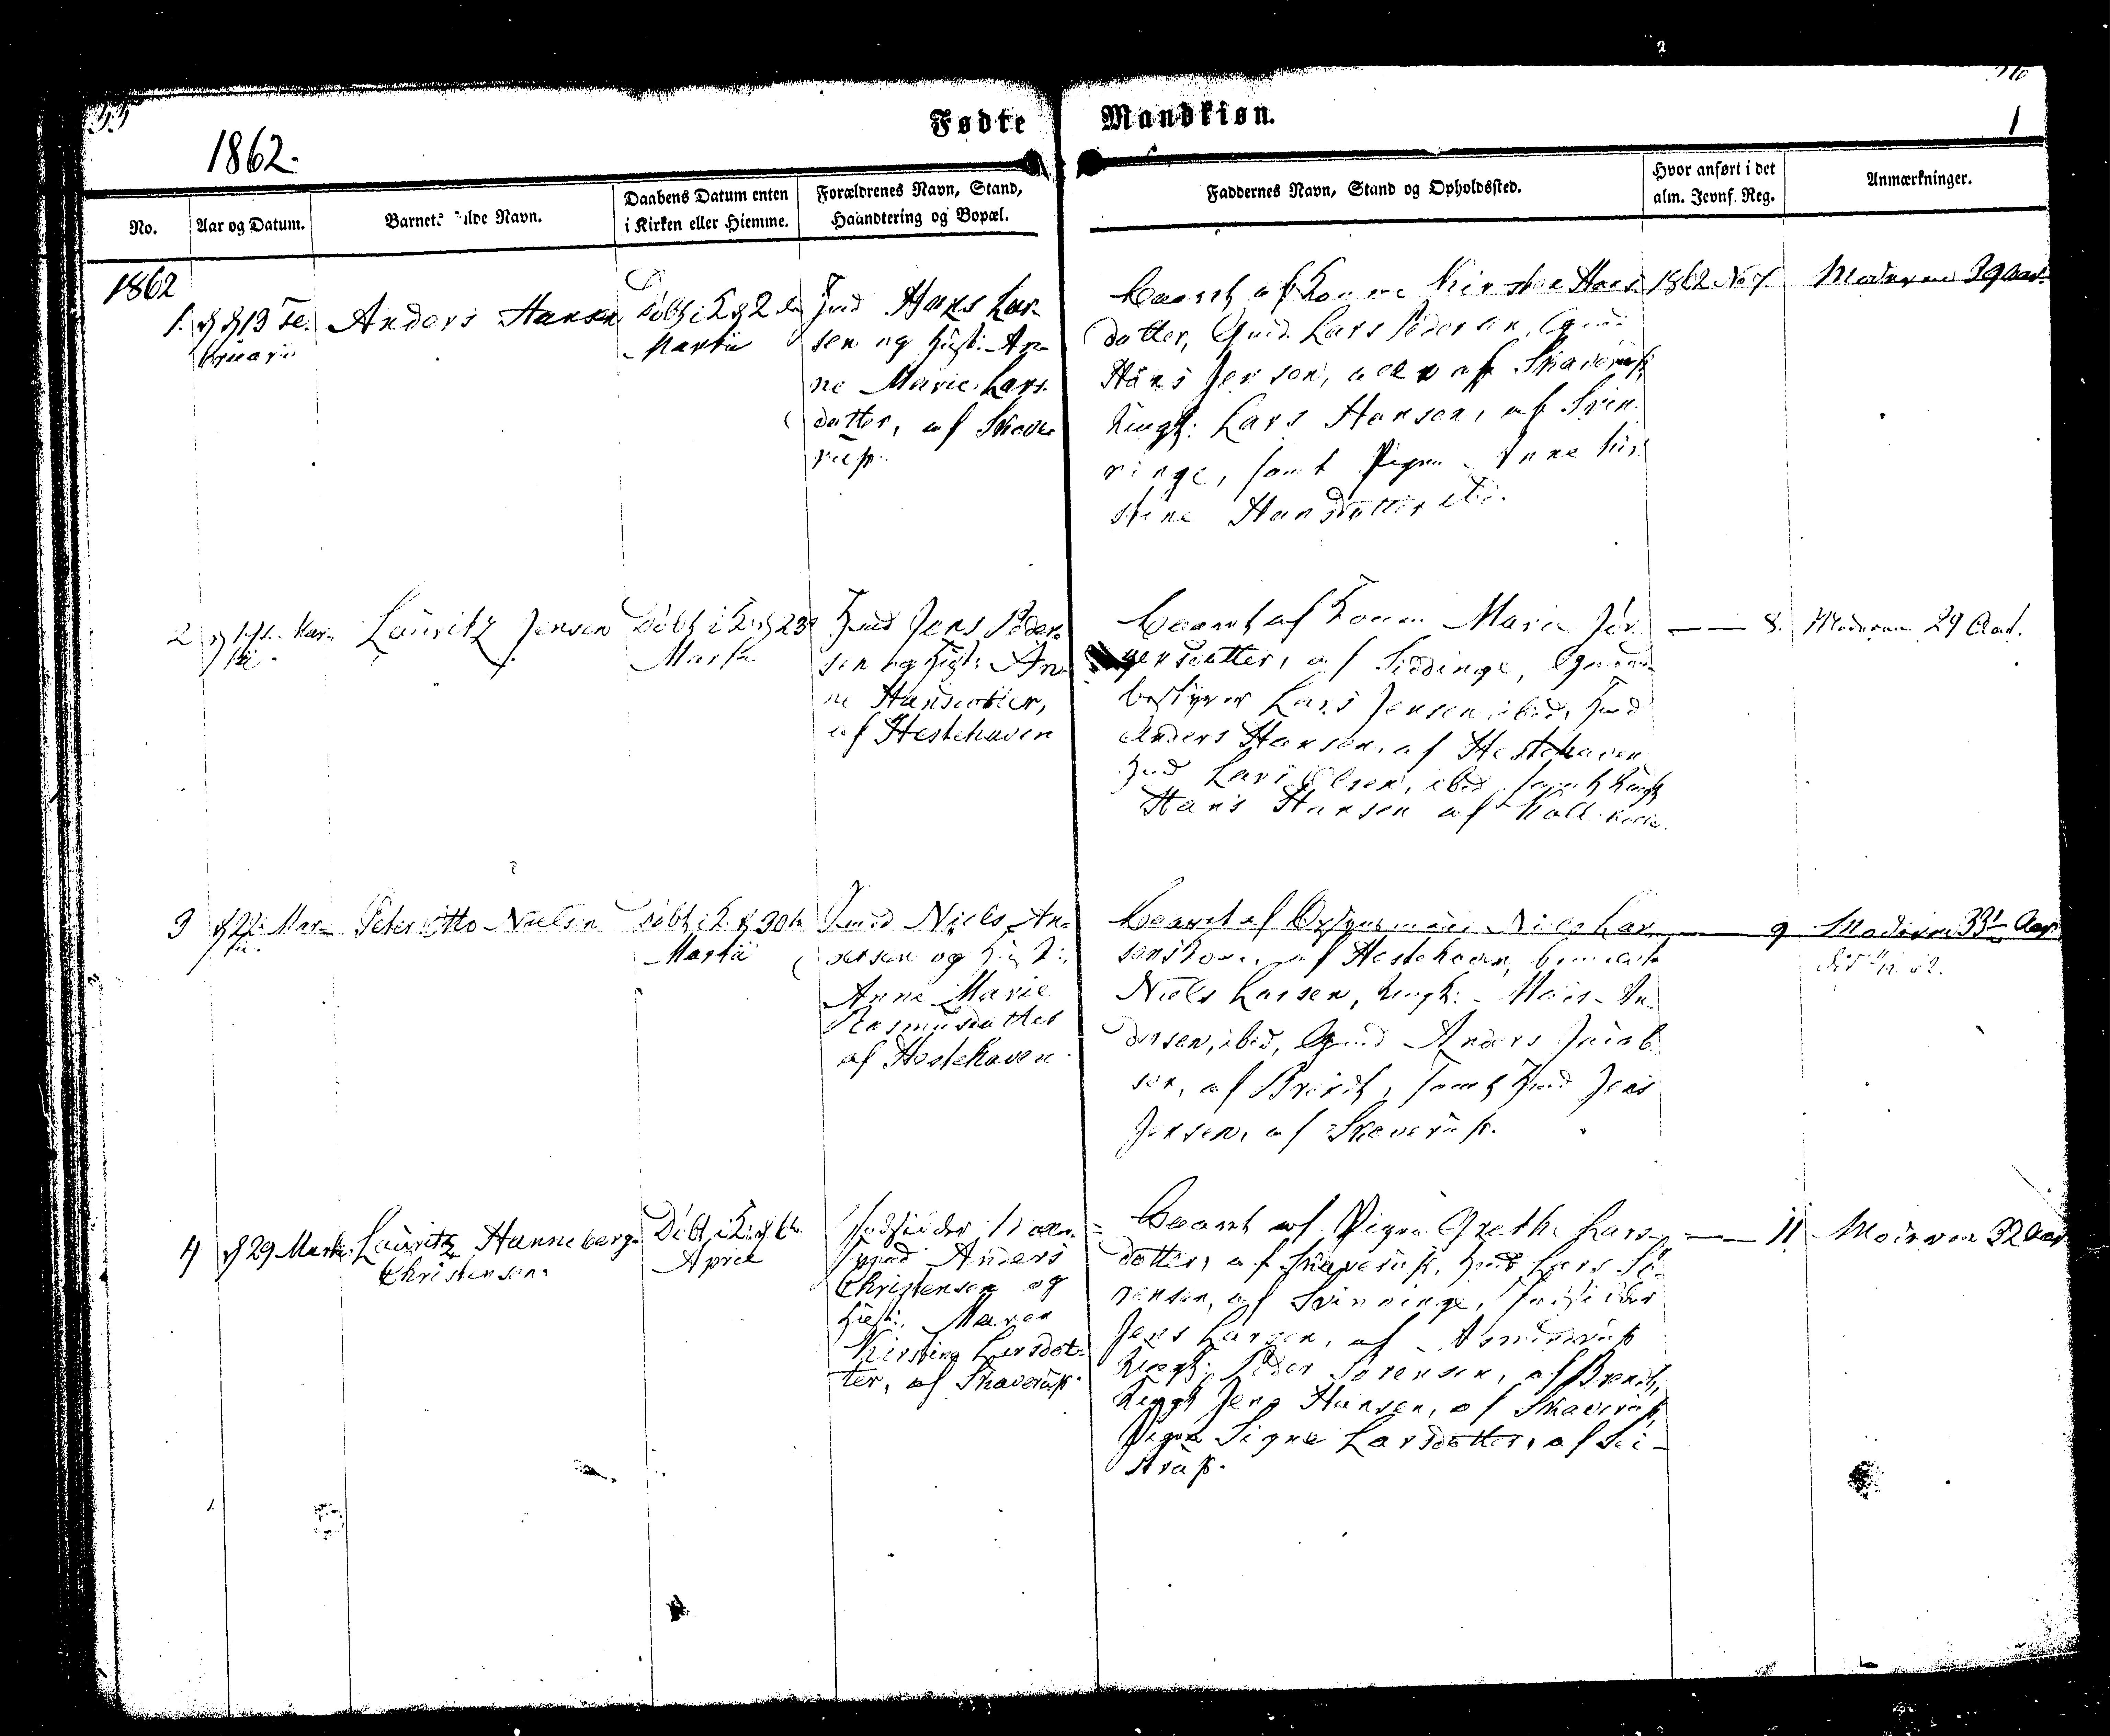 Fødte Mandkiøn.
1
1862.
No.
Aar og Datum.
Barnets fulde Navn.
Daabens Datum enten
i Kirken eller Hiemme.
Forældrenes Navn, Stand,
Haandtering og Bopæl.
Faddernes Navn, Stand og Opholdssted.
Hvor anført i det
alm. Jevnf. Reg.
Anmærkninger.
1862
1.
d 13 Fe-
bruarii
Anders Hansen
Døbt i K d 2den
Martii
Hmd Hans Lar-
sen og Hust: An-
ne Marie Lars-
datter, af Skave-
rup.
Baaret af Konen Kirsten Hans-
datter, Gmd. Lars Pedersen, Gmd
Hans Jensen, alle af Skaverup,
Ungk: Lars Hansen, af Svin-
ninge, samt Pigen Anne Kir-
stine Hansdatter ibd.
1862 No 7.
Moderen 39 Aar.
2
Mar-
tii.
Lauritz Jensen
Døbt i K d 23
Martii
Hmd Jens Peder-
sen og Hust: An-
ne Hansdatter,
af Hestehaven
Baaret af Konen Marie Jør-
gensdatter, af Siddinge,
bestyrer Lars Jensen, ibid, Hmd
Anders Hansen, af Hestehaven
Hmd Lars Olsen, ibid, samt Ungk
Hans Hansen af
8.
Moderen 29 Aar.
3
d 22 Mar-
tii.
Peter Otto Nielsen
Døbt i K. d 30te
Martii
Hmd Niels An-
dersen og Hust:
Anne Marie
Rasmusdatter
af Hestehaven
Baaret af Niels Lar-
sens Kone, af Hestehaven,
Niels Larsen, Ungk: Mads An-
dersen, ibid, Gmd Anders Jacob-
sen, af samt Hmd Jens
Jensen, af Skaverup.
9
Moderen 33 Aar
4
d 29 Martii
Lauritz Hanneberg
Christensen
Døbt i K. d 6te
April
Indsidder
Anders
Christensen og
Hust: Maren
Kirstine Larsdat-
ter, af Skaverup.
Baaret af Pigen Grethe Lars-
datter, af Skaverup, Hmd Lars Sø-
rensen, af Svinninge, Indsidder
Jens Larsen, af
Ungk: Peder Sørensen, af
Ungk Jens Hansen, af Skaverup,
Pigen Signe Larsdatter, af
strup.
11.
Moderen 32 Aar